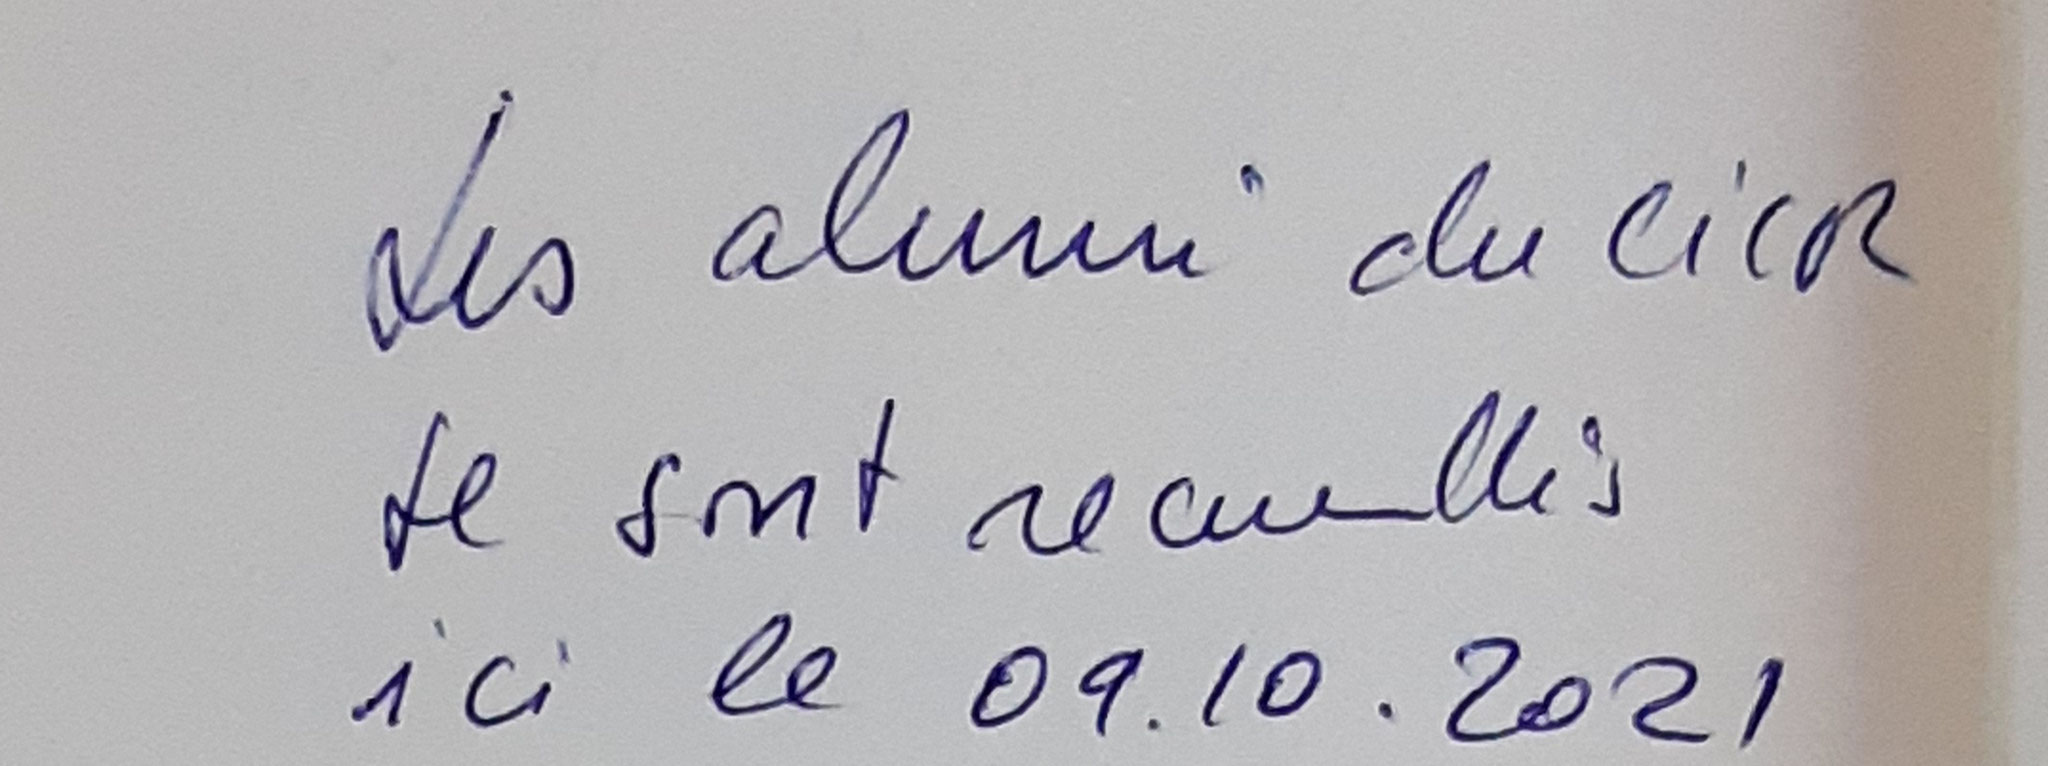 Les alumni du CICR
se sont recueillis
ici le 09.10.2021